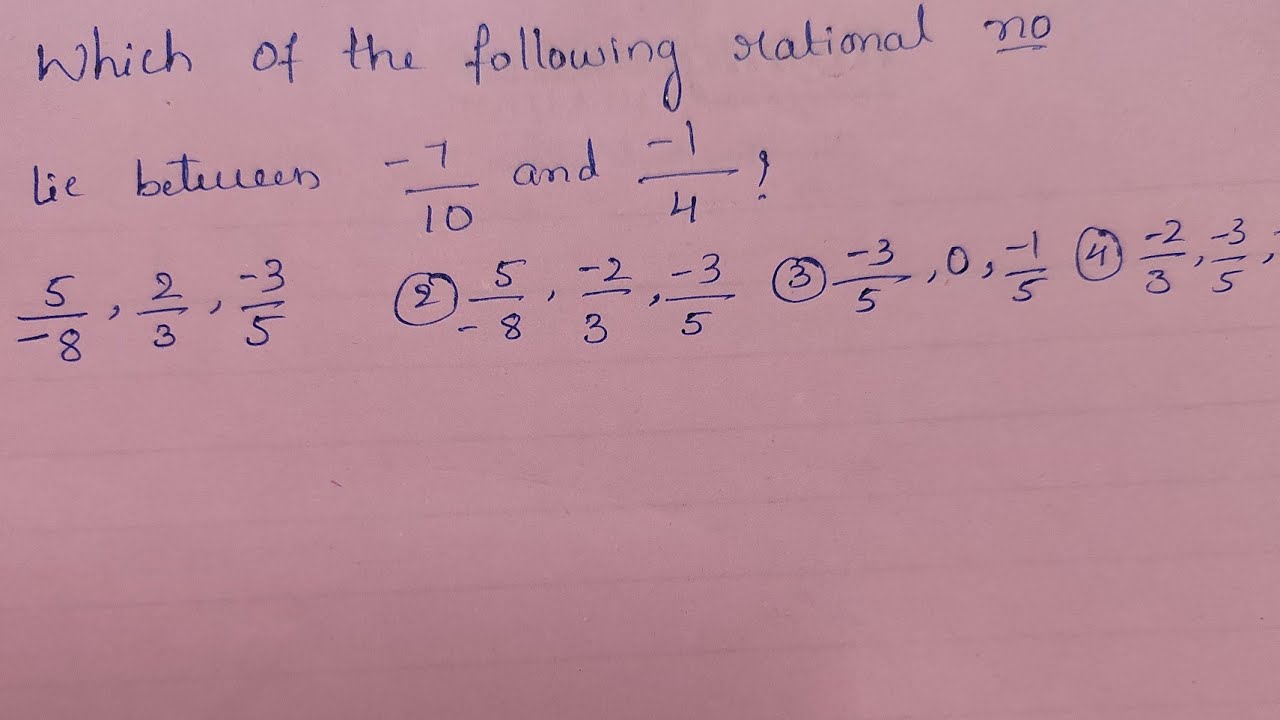 Which of the following rational no
lie between -7/10 and -1/4 ?
5/-8, 2/3, -3/5 ② 5/-8, -2/3, -3/5 ③ -3/5, 0, -1/5 ④ -2/3, -3/5,